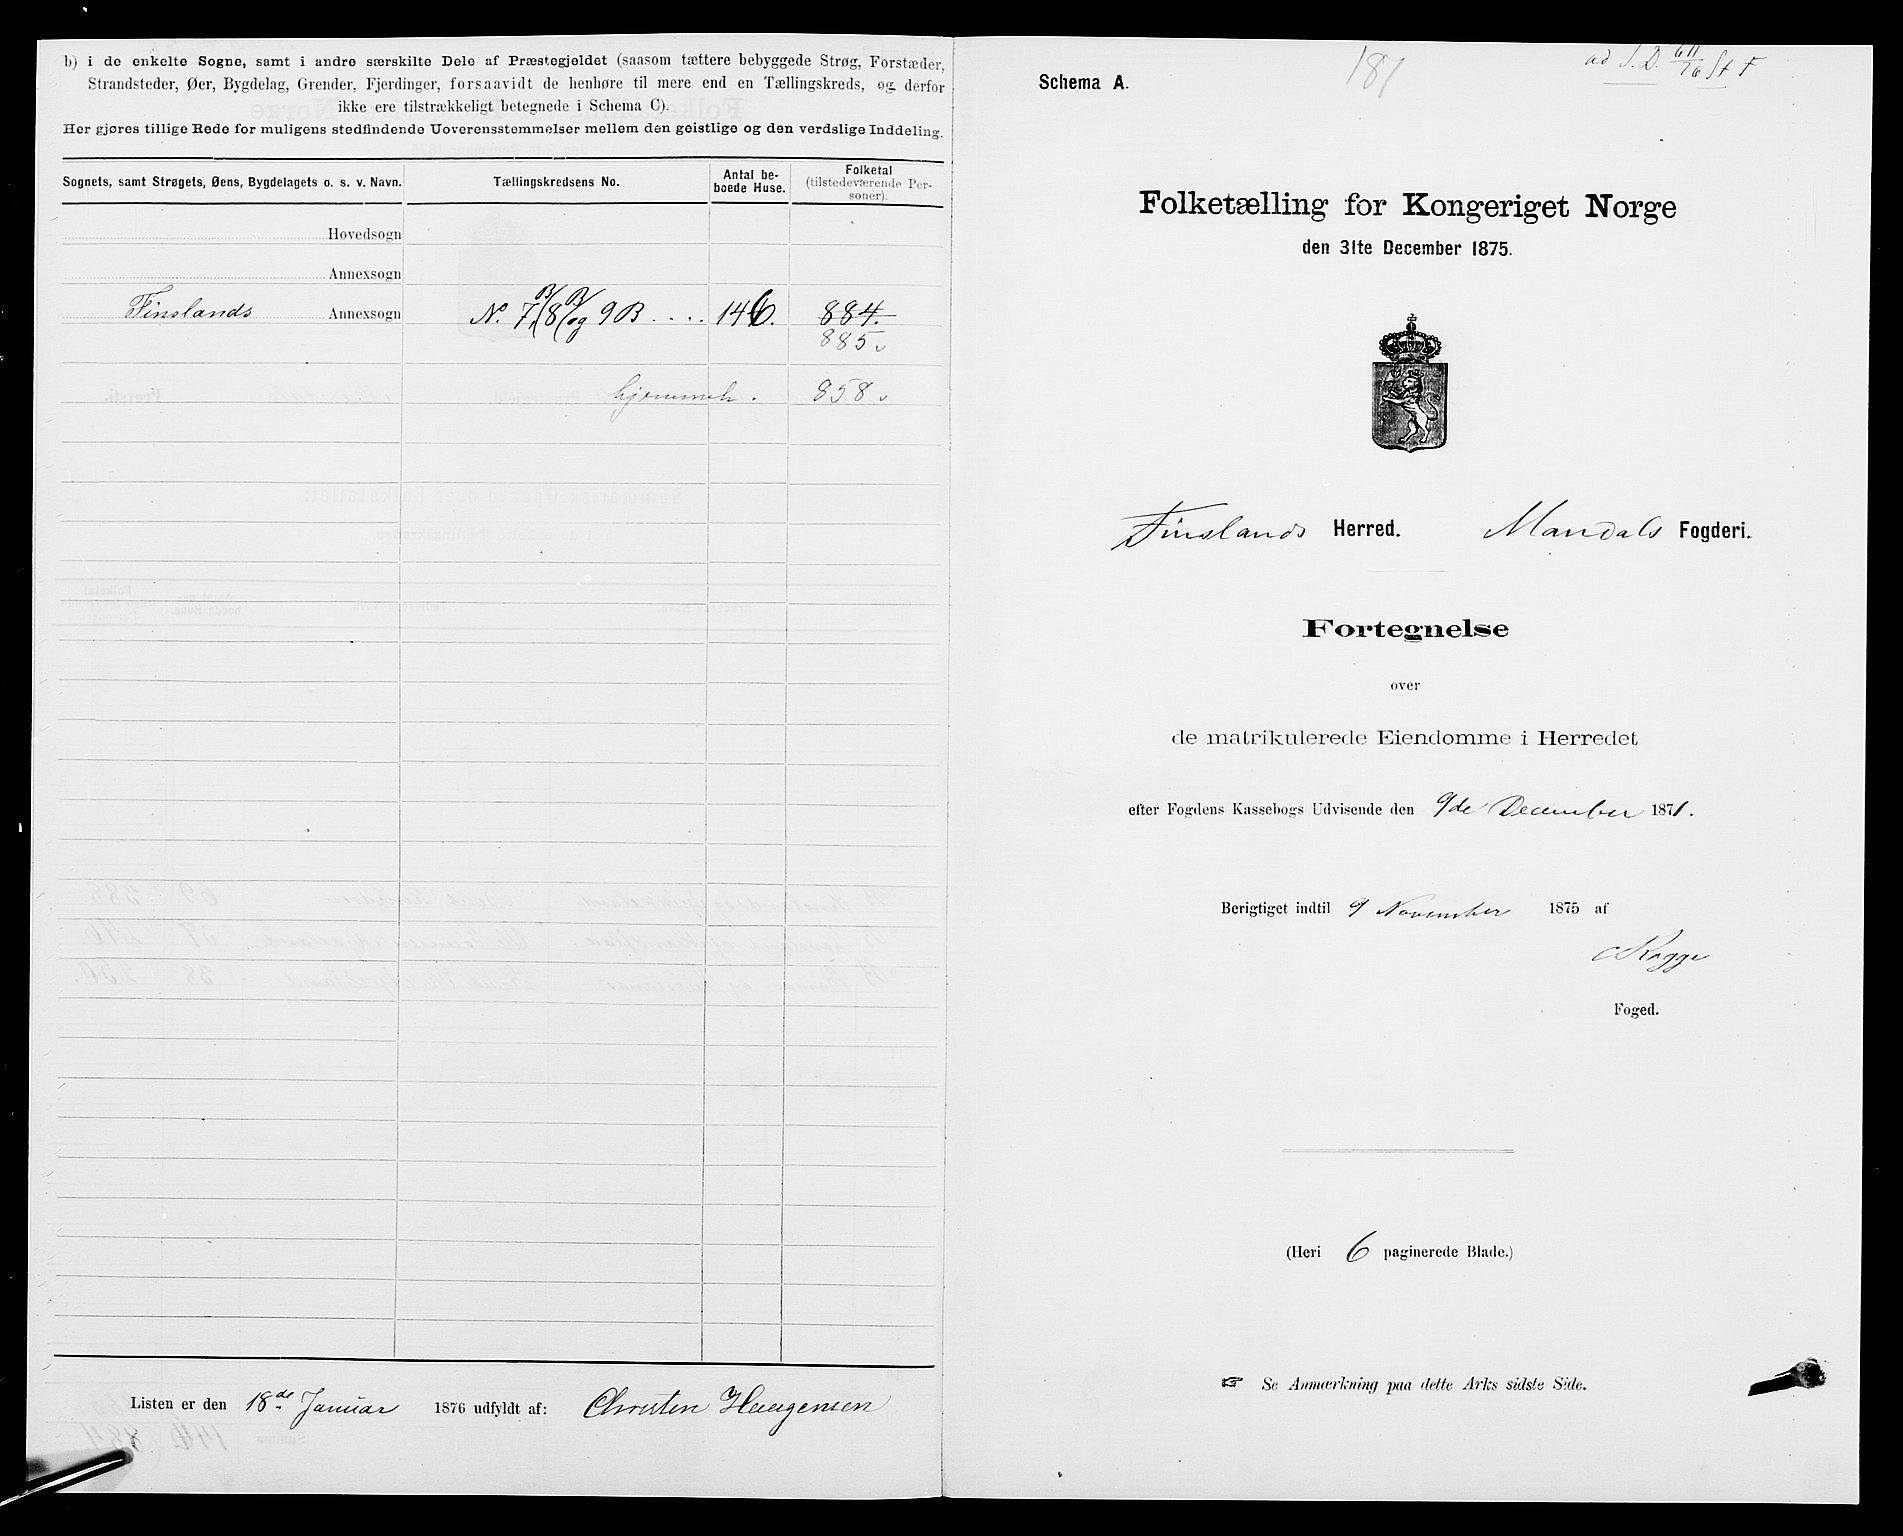 b) i de enkelte Sogne, samt i andre særskilte Dele af Præstegjeldet (saasom tættere bebyggede Strøg, Forstæder,
Strandsteder, Øer, Bygdelag, Grender, Fjerdinger, forsaavidt de henhøre til mere end en Tællingskreds, og derfor
ikke ere tilstrækkeligt betegnede i Schema C).
Her gjøres tillige Rede for muligens stedfindende Uoverensstemmelser mellem den geistlige og den verdslige Inddeling.
Sognets, samt Strøgets, Øens, Bygdelagets o. s. v. Navn. Tællingskredsens No. Antal be-boede Huse. Folketal (tilstedeværende Per-soner).
Hovedsogn
Annexsogn
Finslands Annexsogn N. 7B, 8B og 9B .... 146. 884.
885.
hjemmeh. 858.
Listen er den 18de Januar 1876 udfyldt af: Christen Haagensen
Schema A.
181
ad S.D. 611/76 St F
Folketælling for Kongeriget Norge
den 31te December 1875.
Finslands Herred. Mandals Fogderi.
Fortegnelse
over
de matrikulerede Eiendomme i Herredet
efter Fogdens Kassebogs Udvisende den 9de December 1871.
Berigtiget indtil 9 November 1875 af
Rogge
Foged.
(Heri 6 paginerede Blade.)
☞ Se Anmærkning paa dette Arks sidste Side.